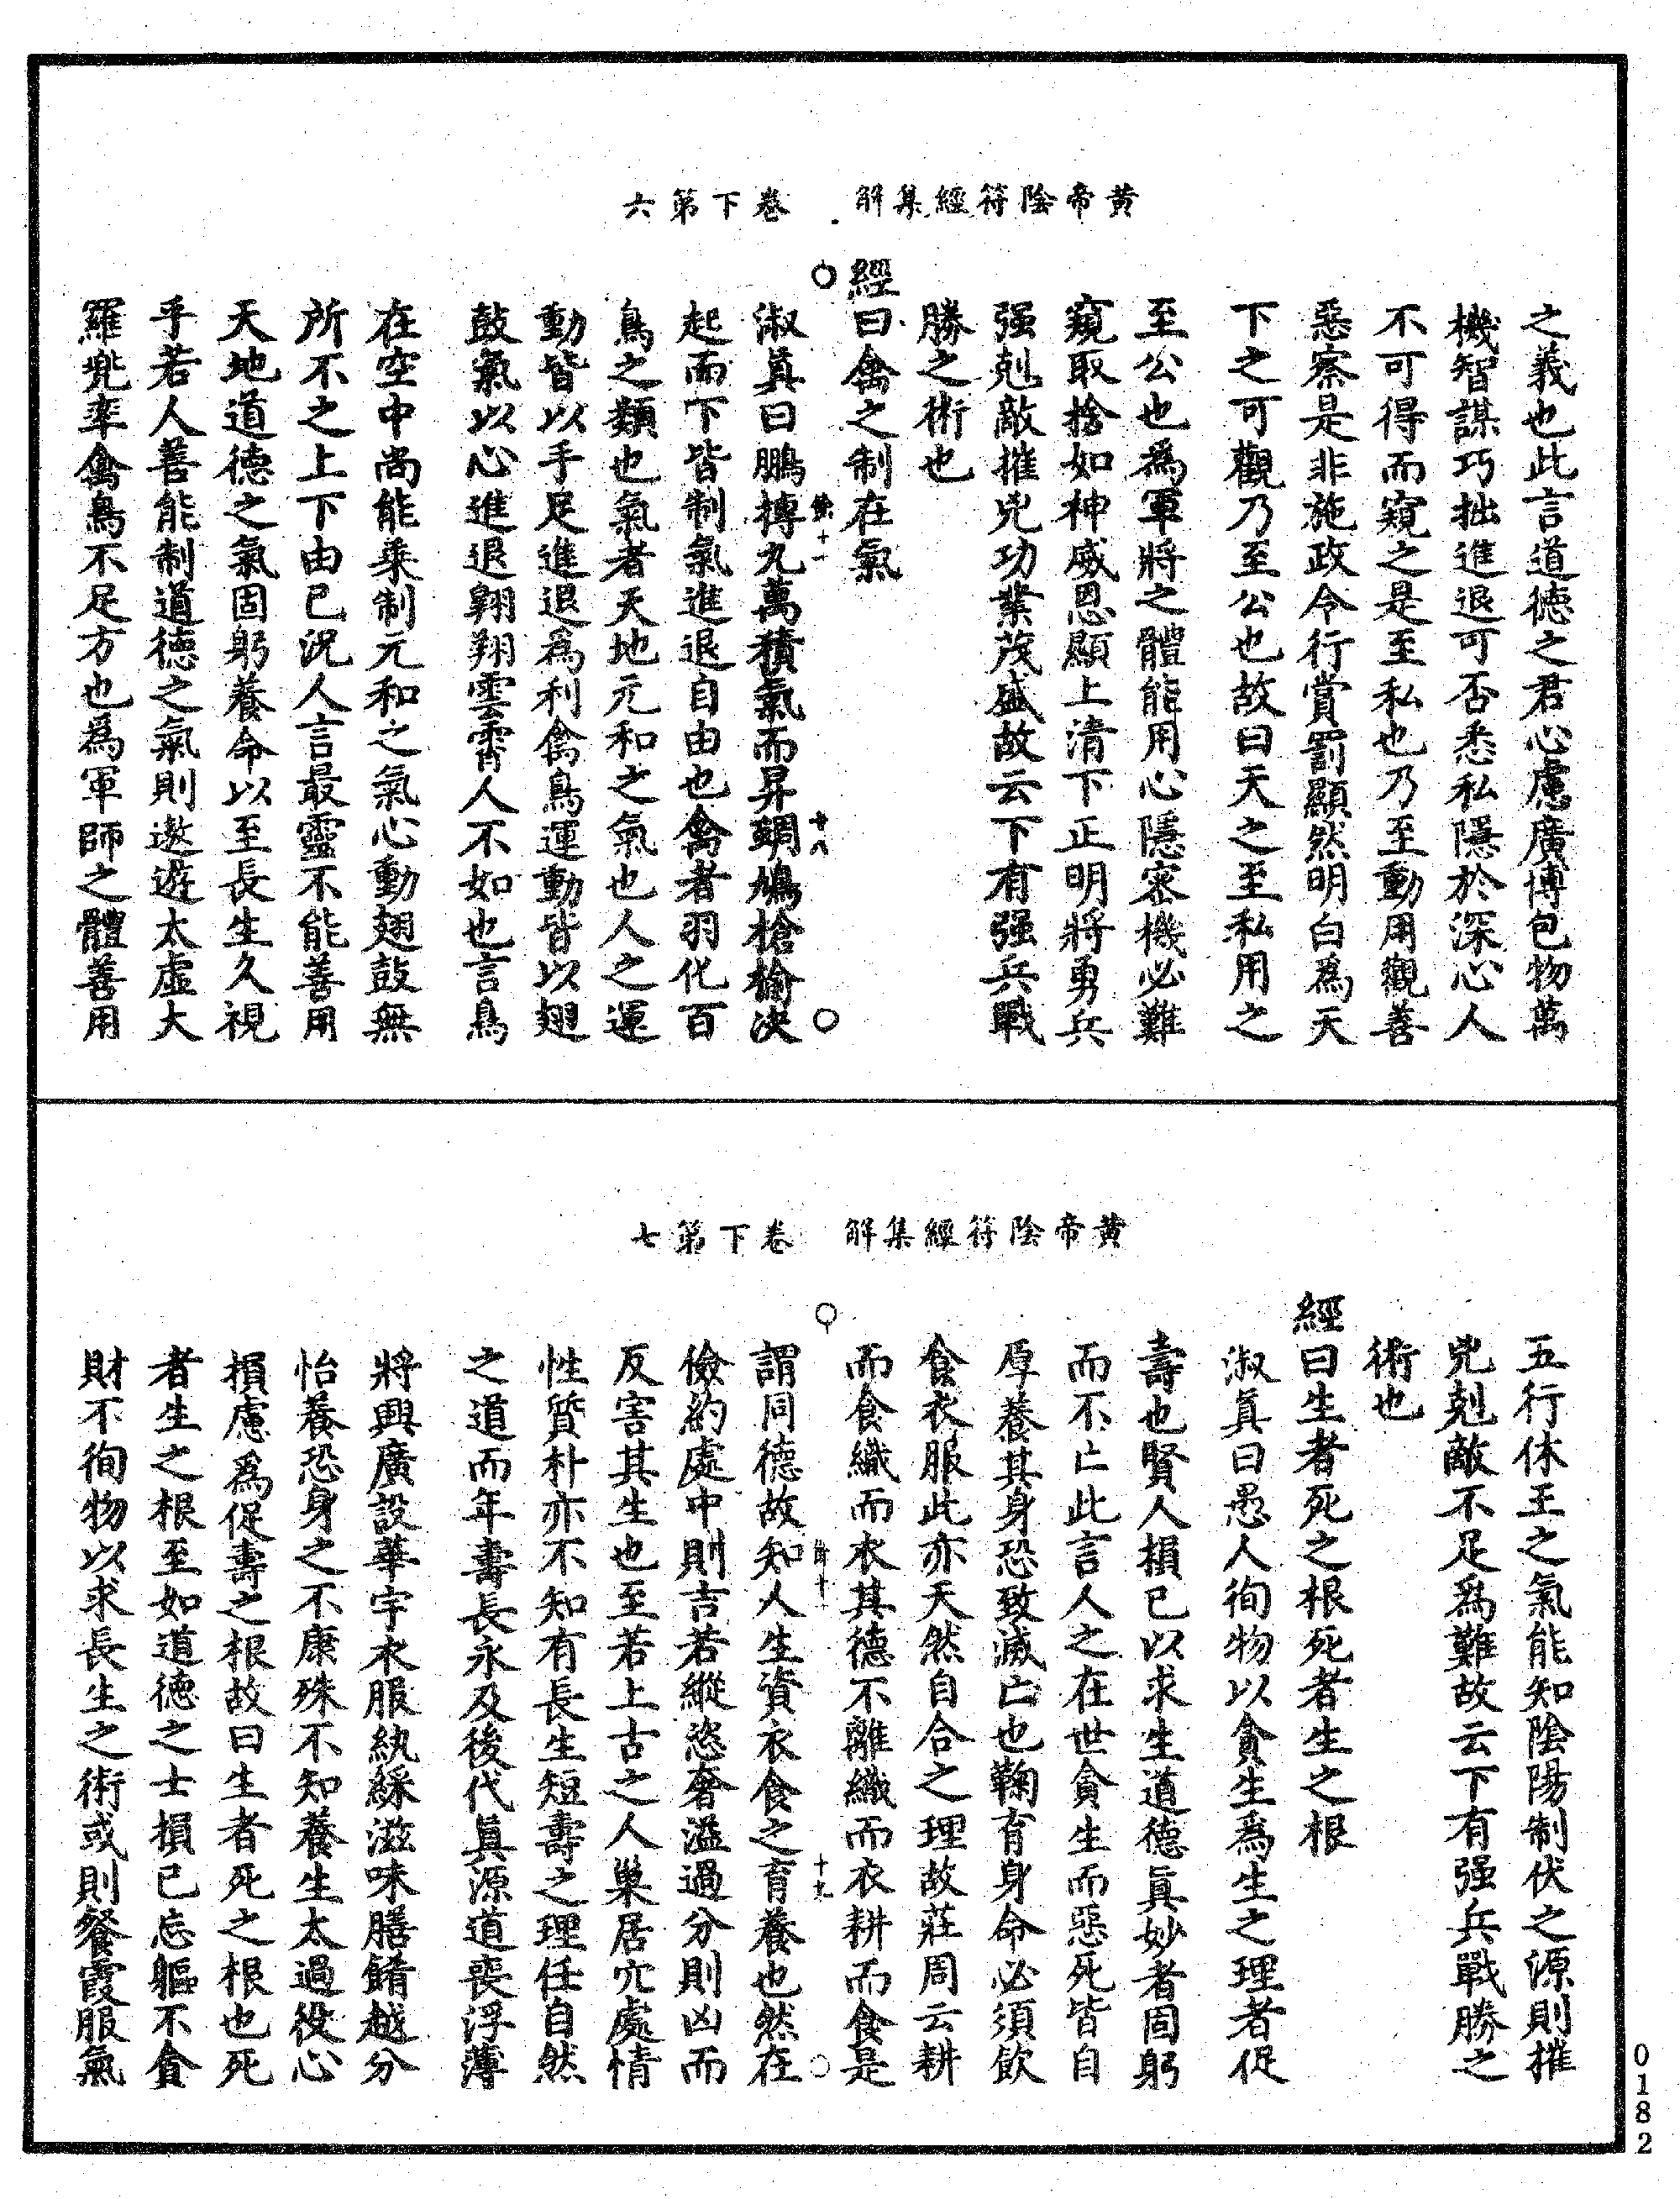 黃帝陰符經集解 卷下第六
之義也此言道德之君心慮廣博包物萬
機智謀巧拙進退可否悉私隱於深心人
不可得而窺之是至私也乃至動用觀善
惡察是非施政令行賞罰顯然明白爲天
下之可觀乃至公也故曰天之至私用之
至公也爲軍將之體能用心隱密機必難
窺取捨如神威恩顯上清下正明將勇兵
强剋敵摧兇功業茂盛故云下有强兵戰
勝之術也
經曰禽之制在氣
淑真曰鵬摶九萬積氣而昇蜩鳩槍榆决
起而下皆制氣進退自由也禽者羽化百
鳥之類也氣者天地元和之氣也人之運
動皆以手足進退爲利禽鳥運動皆以翅
鼓氣以心進退翱翔雲霄人不如也言鳥
在空中尚能乘制元和之氣心動翅鼓無
所不之上下由已況人言最靈不能善用
天地道德之氣固躬養命以至長生久視
乎若人善能制道德之氣則遨遊太虛大
羅兠率禽鳥不足方也爲軍師之體善用
黃帝陰符經集解 卷下第七
五行休王之氣能知陰陽制伏之源則摧
兇剋敵不足爲難故云下有强兵戰勝之
術也
經曰生者死之根死者生之根
淑真曰愚人徇物以貪生爲生之理者促
壽也賢人損已以求生道德真妙者固躬
而不亡此言人之在世貪生而惡死皆自
厚養其身恐致滅亡也鞠育身命必須飲
食衣服此亦天然自合之理故莊周云耕
而食織而衣其德不離織而衣耕而食是
謂同德故知人生資衣食之育養也然在
儉約處中則吉若縱恣奢溢過分則凶而
反害其生也至若上古之人巢居穴處情
性質朴亦不知有長生短壽之理任自然
之道而年壽長永及後代真源道喪浮薄
將興廣設華宇衣服紈綵滋味膳餚越分
怡養恐身之不康殊不知養生太過役心
損慮爲促壽之根故曰生者死之根也死
者生之根至如道德之士損已忘軀不貪
財不徇物以求長生之術或則餐霞服氣
0182